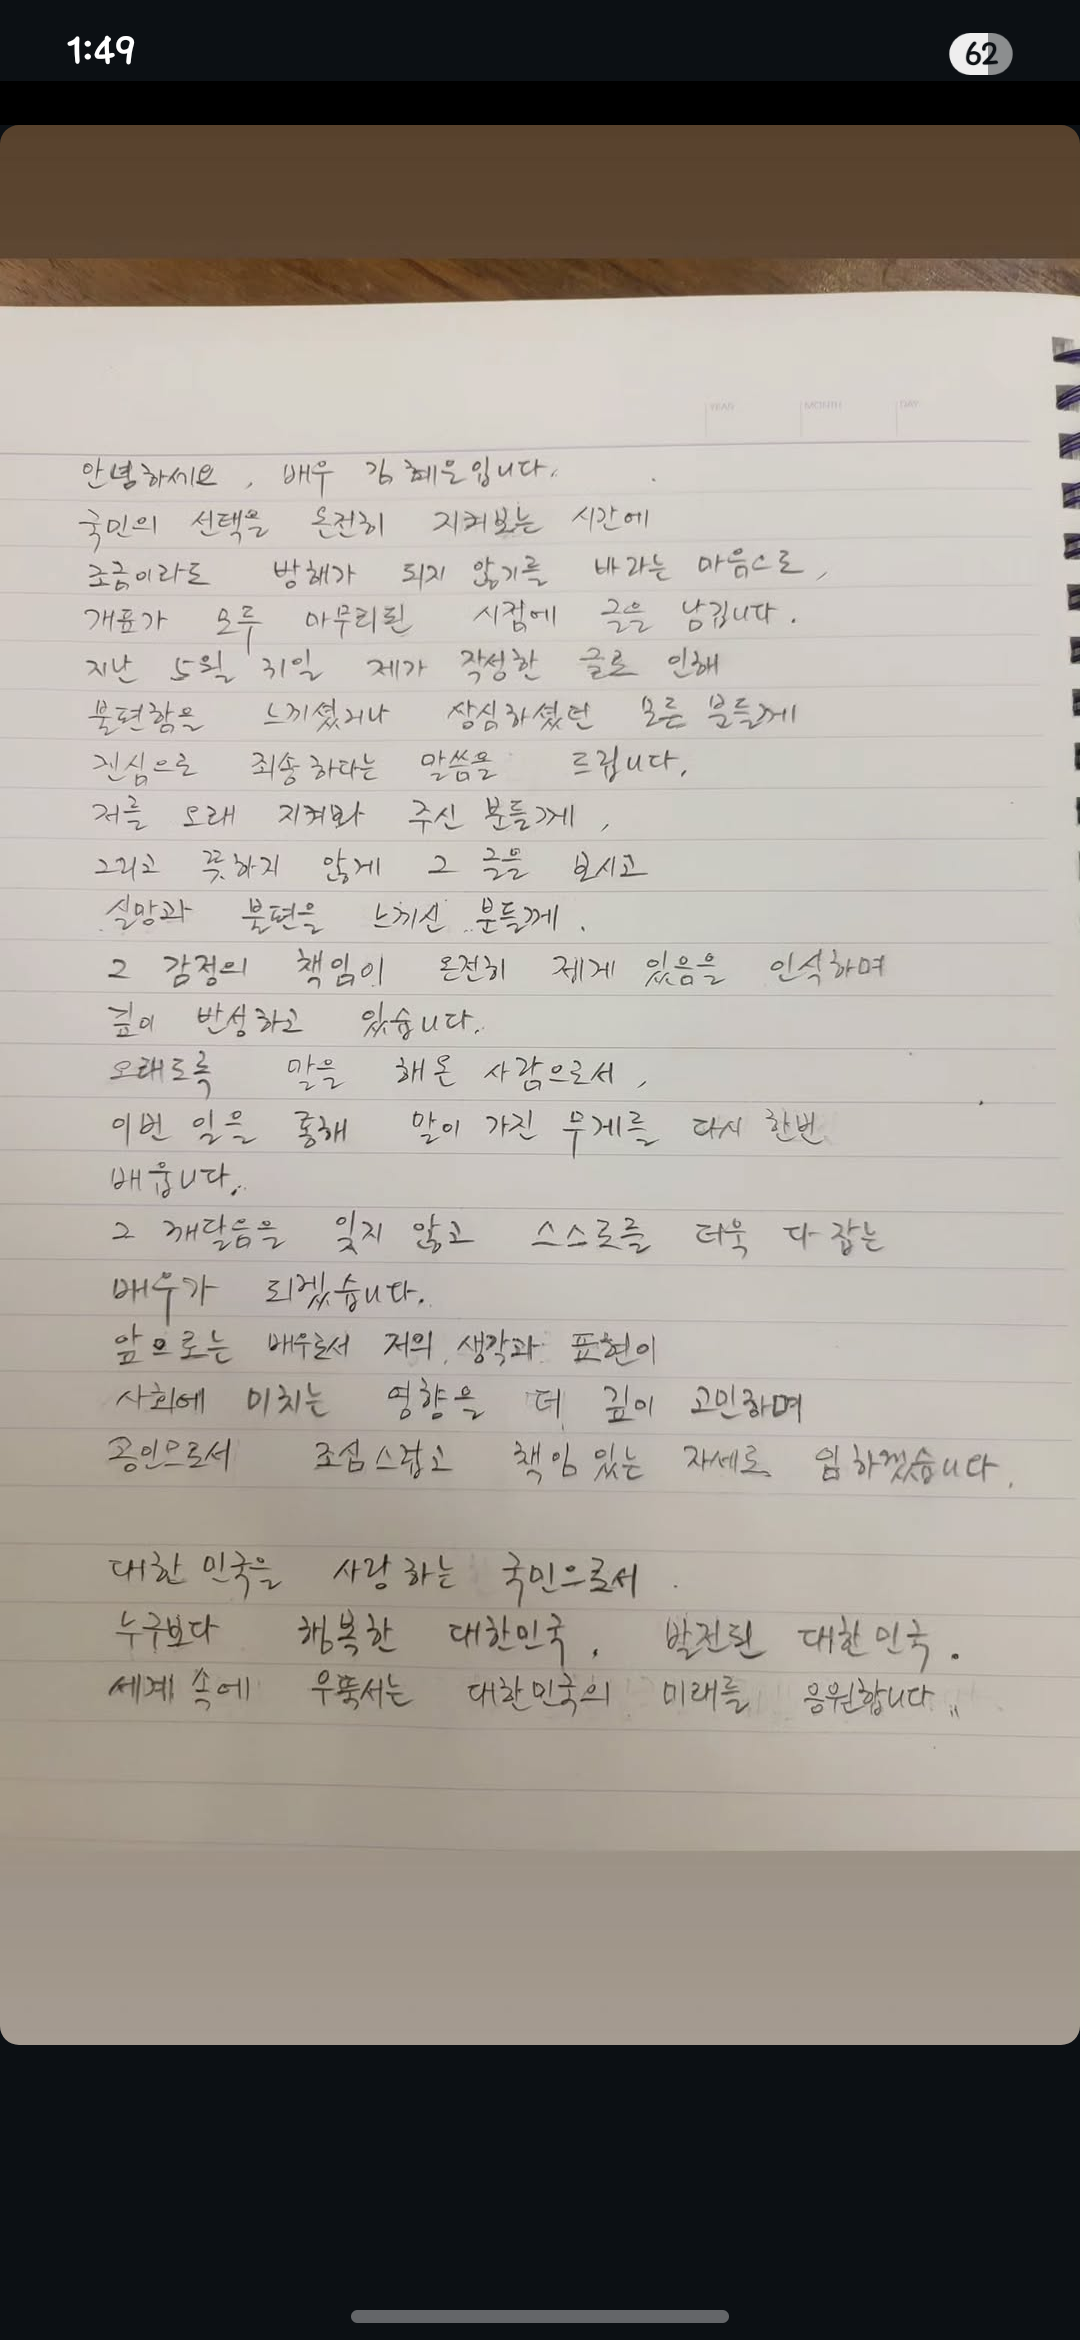 1:49
62
YEAR MONTH DAY
안녕하세요, 배우 김혜은입니다.
국민의 선택을 온전히 지켜보는 시간에
조금이라도 방해가 되지 않기를 바라는 마음으로,
개표가 모두 마무리된 시점에 글을 남깁니다.
지난 5월 31일 제가 작성한 글로 인해
불편함을 느끼셨거나 상심하셨던 모든 분들께
진심으로 죄송하다는 말씀을 드립니다.
저를 오래 지켜봐 주신 분들께,
그리고 뜻하지 않게 그 글을 보시고
실망과 불편을 느끼신 분들께.
그 감정의 책임이 온전히 제게 있음을 인식하며
깊이 반성하고 있습니다.
오래도록 말을 해온 사람으로서,
이번 일을 통해 말이 가진 무게를 다시 한번
배웁니다.
그 깨달음을 잊지 않고 스스로를 더욱 다 잡는
배우가 되겠습니다.
앞으로는 배우로서 저의 생각과 표현이
사회에 미치는 영향을 더 깊이 고민하며
공인으로서 조심스럽고 책임 있는 자세로 임하겠습니다.
대한민국을 사랑하는 국민으로서
누구보다 행복한 대한민국, 발전된 대한민국.
세계 속에 우뚝서는 대한민국의 미래를 응원합니다.